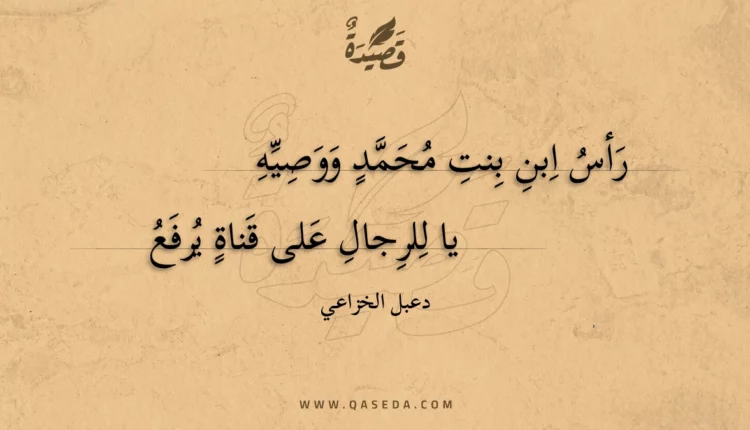 قَصِيْدَةٌ
رَأسُ اِبنِ بِنتِ مُحَمَّدٍ وَوَصِيِّهِ
يا لِلرِجالِ عَلى قَناةٍ يُرفَعُ
دعبل الخزاعي
WWW.QASEDA.COM